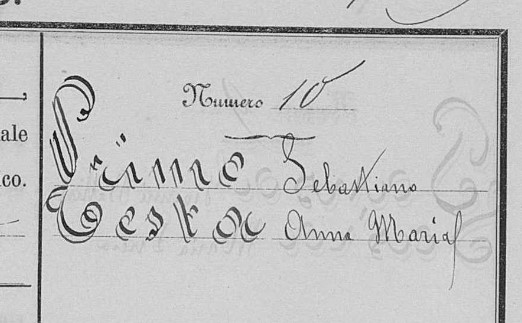 ale
co.
Numero 10
Primo Sebastiano
Testa Anna Maria